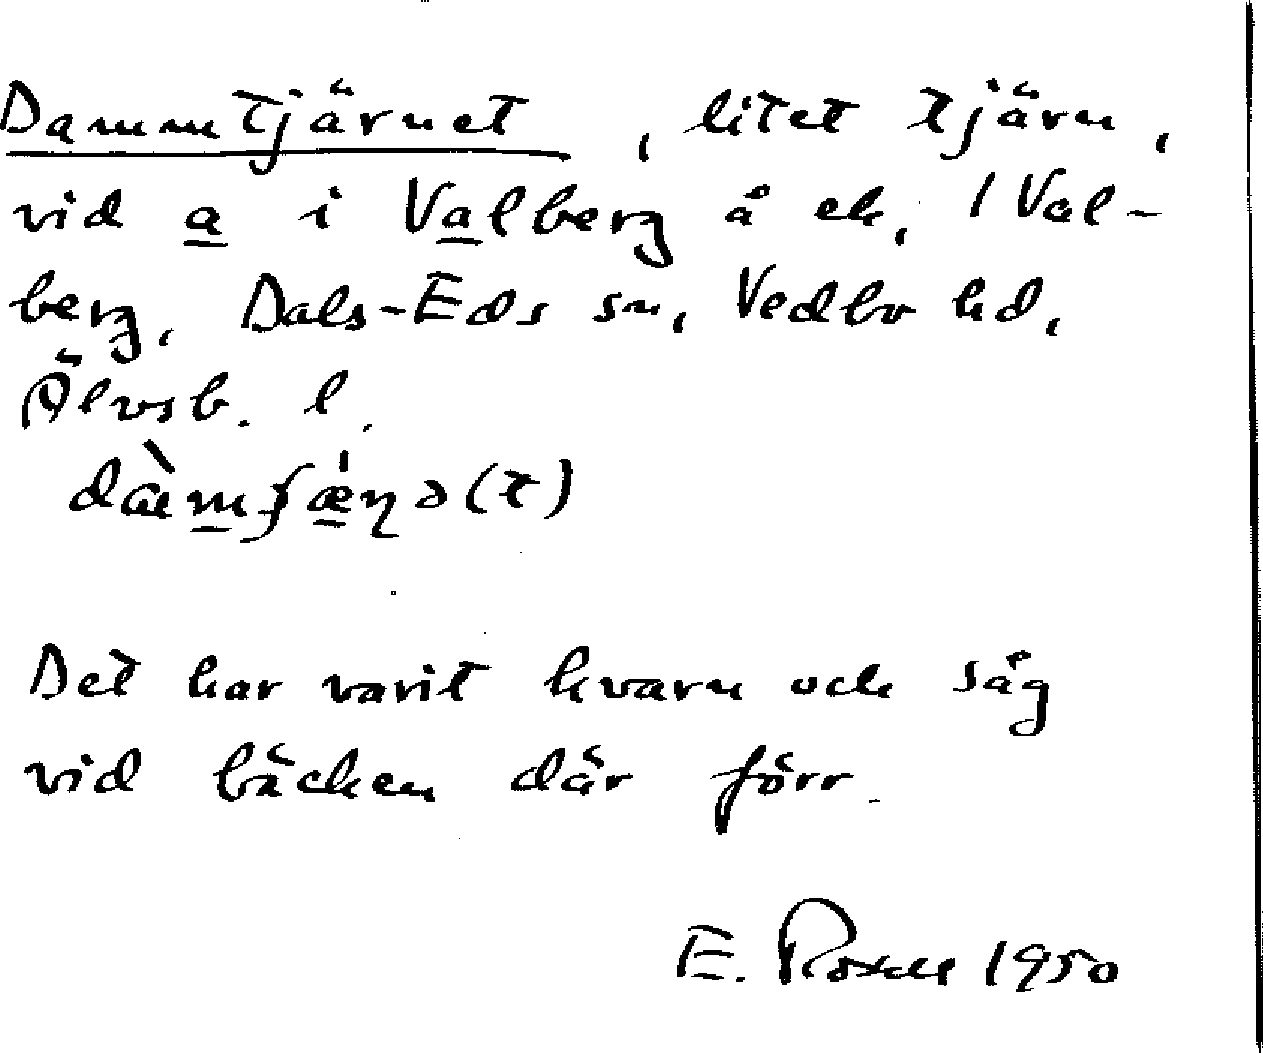 Dammtjärnet, litet tjärn,
vid a i Valberg å ek. 1 Val-
berg, Dals-Eds sn, Vedbo hd,
Älvsb. l.
Det har varit kvarn och såg
vid bäcken där förr.
E. 1950